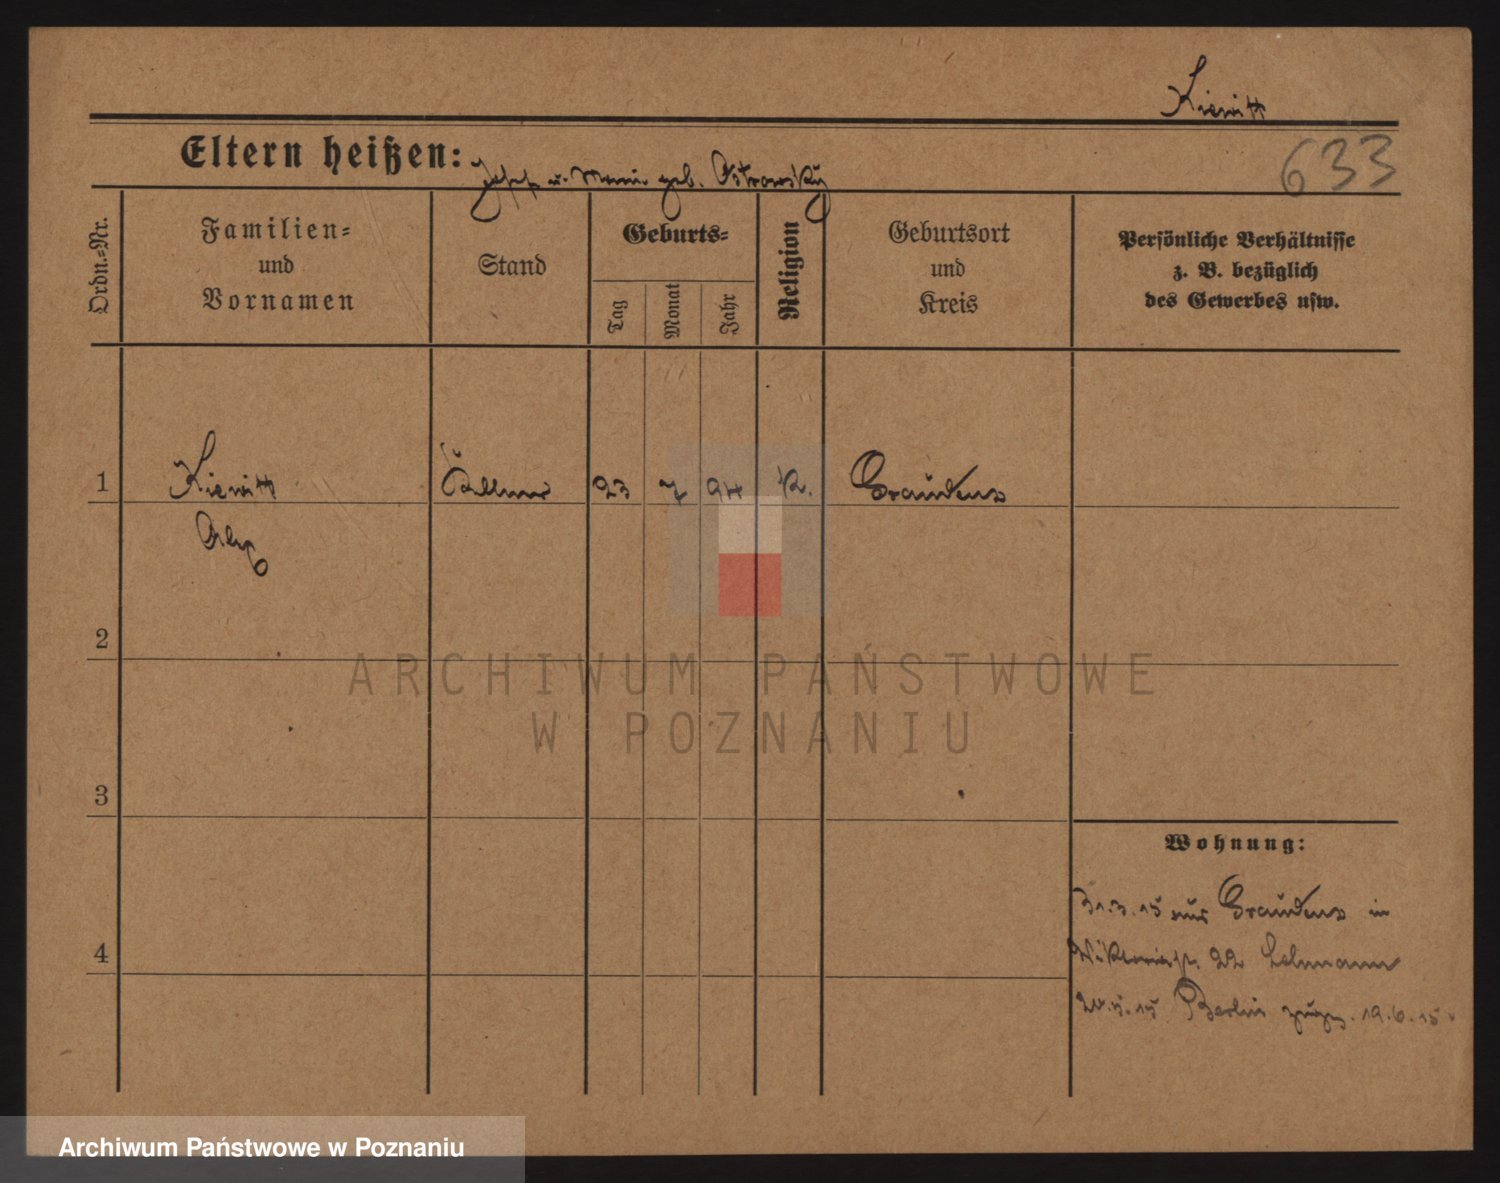 Kiewitt
Eltern heißen: Josef u. Marie geb. Ostrowsky
633
Ordn.-Nr.
Familien-
und
Vornamen
Stand
Geburts-
Tag
Monat
Jahr
Religion
Geburtsort
und
Kreis
Persönliche Verhältnisse
z. B. bezüglich
des Gewerbes usw.
1 Kiewitt Kellner 23 7 94 K. Graudenz
2
ARCHIWUM PAŃSTWOWE
W POZNANIU
3
Wohnung:
31.3.15 aus Graudenz in
22 Lehmann
4
Berlin 19.6.15.
Archiwum Państwowe w Poznaniu